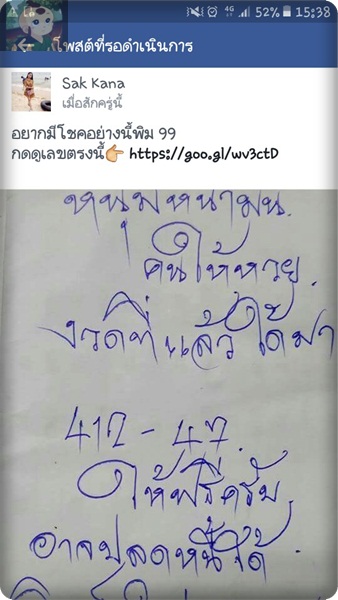 4G 52% 15:38
โพสต์ที่รอดำเนินการ
Sak Kana
เมื่อสักครู่นี้
อยากมีโชคอย่างนี้พิม 99
กดดูเลขตรงนี้👉 https://goo.gl/wv3ctD
หนุ่มหน้ามน.
คนให้หวย.
งวดที่แล้วได้มา
412 - 47.
ให้ฟรีครับ
อาจปลดหนี้ได้.